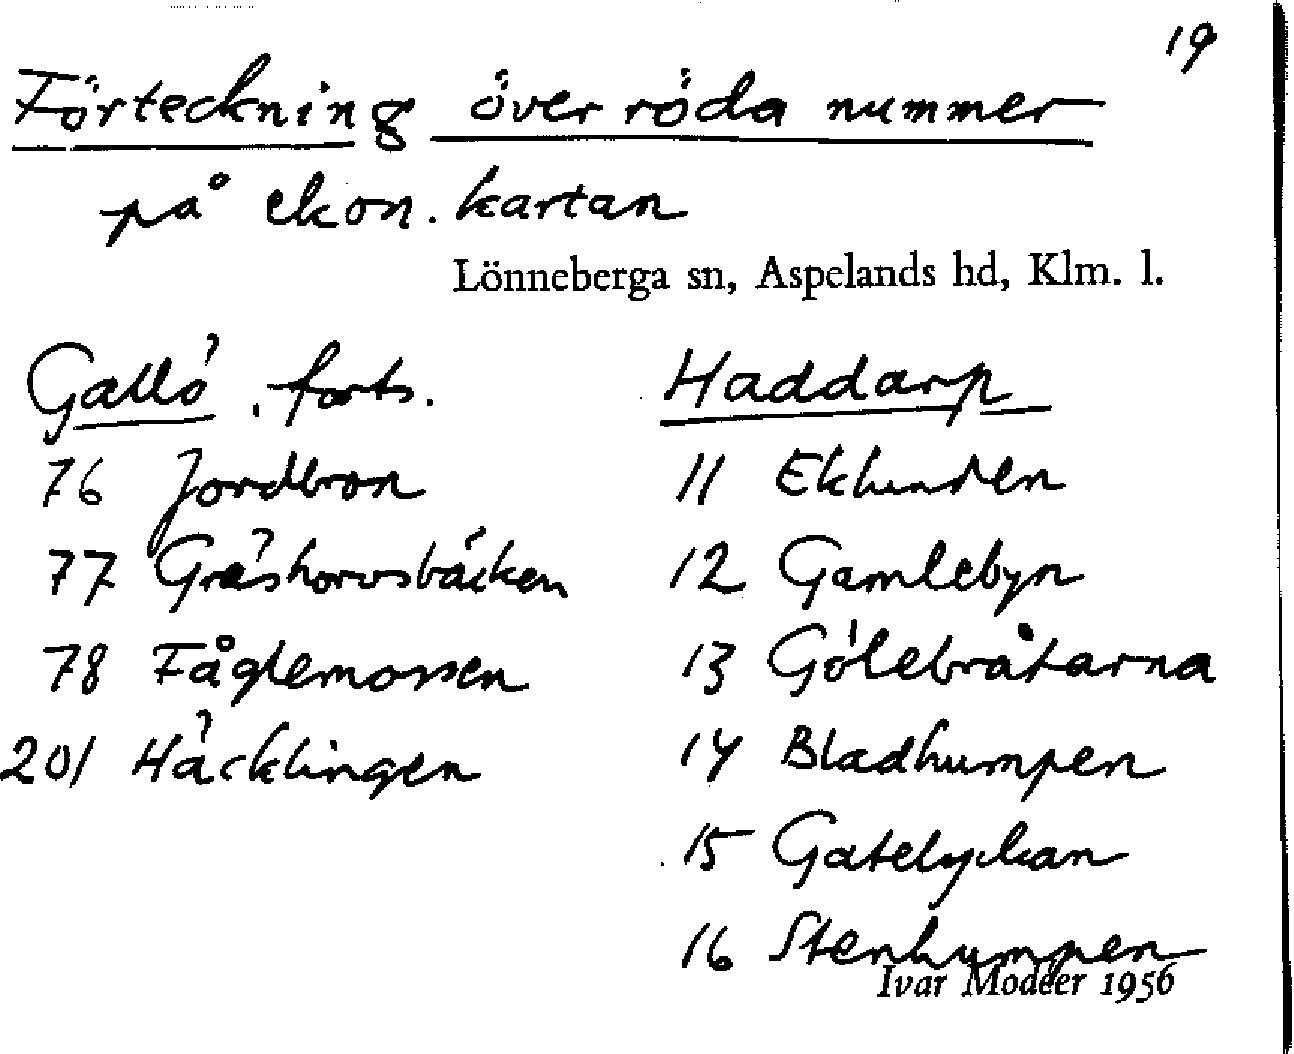 19
Förteckning över röda nummer
på ekon. kartan
Lönneberga sn, Aspelands hd, Klm. l.
Gallö, forts.
76 Jordbron
77 Gräshorvsbäcken
78 Fåglemossen
201 Häcklingen
Haddarp
11 Eklunden
12 Gamlebyn
13 Gölebråtarna
14 Bladhumpen
15 Gatelyckan
16 Stenhumpen
Ivar Modéer 1956